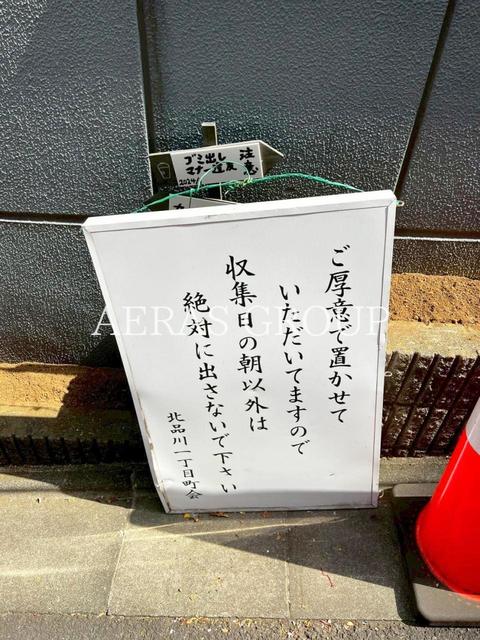 ゴミ出し
マナー違反
注意
2024
ご厚意で置かせて
いただいてますので
収集日の朝以外は
絶対に出さないで下さい
北品川一丁目町会
AERAS GROUP